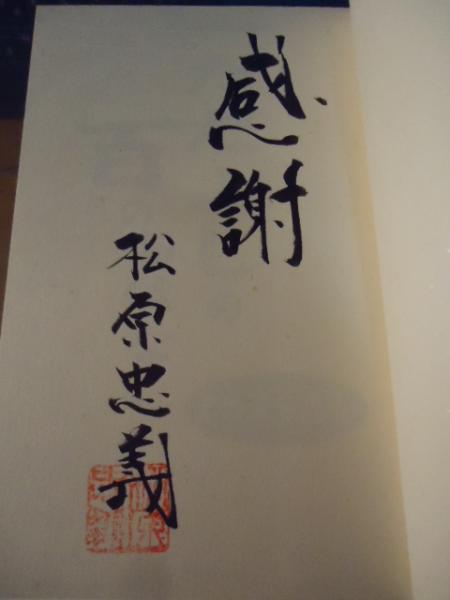 感謝
松原忠義